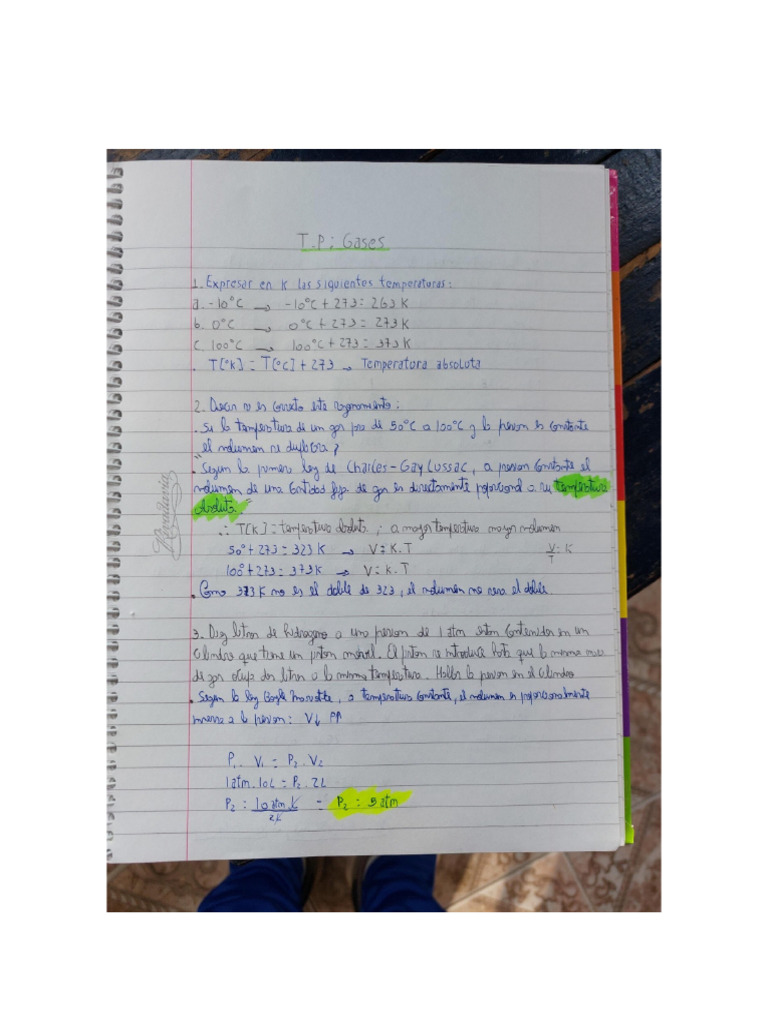 T.P: Gases
1. Expresar en K las siguientes temperaturas:
a. -10°C → -10°C + 273 = 263 K
b. 0°C → 0°C + 273 = 273 K
c. 100°C → 100°C + 273 = 373 K
. T[°K] = T[°C] + 273 → Temperatura absoluta
2. Decir si es correcto este razonamiento:
. Si la temperatura de un gas pasa de 50°C a 100°C y la presion es constante
el volumen se duplica?
. Segun la primera ley de Charles - Gay Lussac, "a presion constante el
volumen de una cantidad fija de gas es directamente proporcional a su temperatura
absoluta."
∴ T[K] = temperatura absoluta ; a mayor temperatura mayor volumen
50° + 273 = 323 K → V = K . T V/T = K
100° + 273 = 373 K → V = K . T
. Como 373 K no es el doble de 323, el volumen no sera el doble.
3. Diez litros de hidrogeno a una presion de 1 atm estan contenidos en un
cilindro que tiene un piston movil. El piston se introduce hasta que la misma masa
de gas ocupa dos litros a la misma temperatura. Hallar la presion en el cilindro
. Segun la ley Boyle Mariotte, a temperatura constante, el volumen es proporcionalmente
inverso a la presion: V↓ P↑
P1 . V1 = P2 . V2
1 atm . 10L = P2 . 2L
P2 : 10 atm L / 2L = P2 : 5 atm
Rivadavia